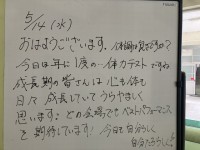 5/14(水)
おはようございます。体調は良ですか?
今日は年に1度の体力テストですね
成長期の皆さんは心も体も
日々成長していてうらやましく
思います。どの会場でもベストパフォーマンス
を期待しています! 今日も自分らしく